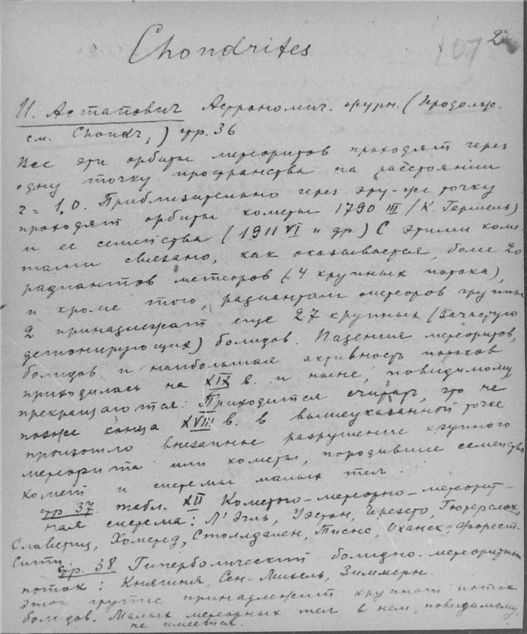 2
107
Chondrites
И. Астапович Астрономич. журн. (Продолж.
см. Chond.,) стр. 36
Все эти орбиты метеоритов проходят через
одну точку пространства на расстоянии
r = 1,0. Приблизительно через эту-же точку
проходят орбиты кометы 1790 III (К. Гершель)
и ее семейства (1911 VI и др.) С этими коме-
тами связано, как оказывается, более 20
радиантов метеоров (4 крупных потока),
и кроме того, радиантам метеоров группы
2 принадлежат еще 27 крупных (зачастую
детонирующих) болидов. Падения метеоритов,
болидов и наибольшая активность потоков
приходилась на XIX в. и ныне, повидимому
прекращаются. Приходится считать, что не
позже конца XVIII в. в вышеуказанной точке
произошло внезапное разрушение крупного
метеорита или кометы, породившее семейство
комет и системы малых тел.
стр. 37 табл. XII Кометно-метеорно-метеорит-
ная система: Л'Эгль, Уэстон, Черезето, Гютерсло,
Славетиц, Хомстед, Стэлдален, Тисне, Оханск, Форест-
Сити.
Стр. 38 Гиперболический болидно-метеоритный
поток: Княгиня, Сен-Мишель, Зиммерн.
Этой группе принадлежит крупный поток
болидов. Малых метеорных тел в нем, повидимому,
не имеется.